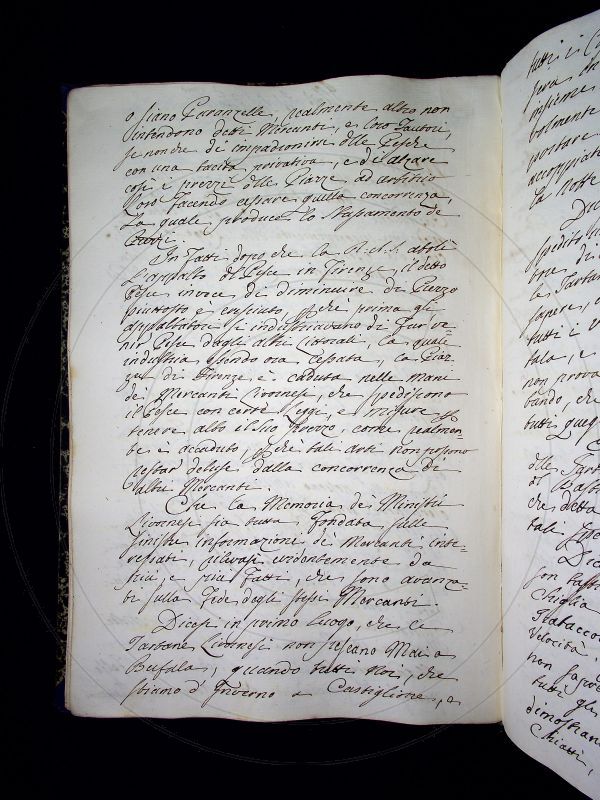 o siano Paranzelle, realmente altro non
intendono detti Mercanti, e loro Fautori,
se non che di impadronirsi delle Pesche
con una tacita privativa, e di alzare
così i prezzi delle Piazze ad arbitrio
loro facendo cessare quella concorrenza,
la quale produce lo sbassamento de
Prezzi.
In fatti dopo che la R.A.S. abolì
l'appalto del Pesce in Firenze, il detto
Pesce invece di diminuire di Prezzo
piuttosto è cresciuto, perchè prima gli
appaltatori s'industriavano di far ve-
nir Pesce dagli altri Littorali, la quale
industria essendo ora cessata, la Piaz-
za di Firenze è caduta nelle mani
dei Mercanti Livornesi, che spediscono
il Pesce con certe leggi, e misure per
tenere alto il suo Prezzo, come realmen-
te è accaduto, perchè tali arti non possono
restar deluse dalla concorrenza di
altri Mercanti.
Che la Memoria dei Ministri
Livornesi sia tutta fondata sulle
sinistre informazioni de Mercanti inte-
ressati, rilevasi evidentemente da
più, e più fatti, che sono avanza-
ti sulla fede degli stessi Mercanti.
Dicesi in primo luogo, che le
Tartane Livornesi non pescano Mai a
Bufala, quando tutti Noi, che
stiamo d'Inverno a Castiglione, e
tutti i
insieme
portare
accoppiate
la notte
bra di
le Tartane
sapere,
tutti i
tala, e
non prova
bando, che
tutti que
delle Tart
che detta
tali
son tass
Velocità,
tutti gli
dimostran
Chiatti,